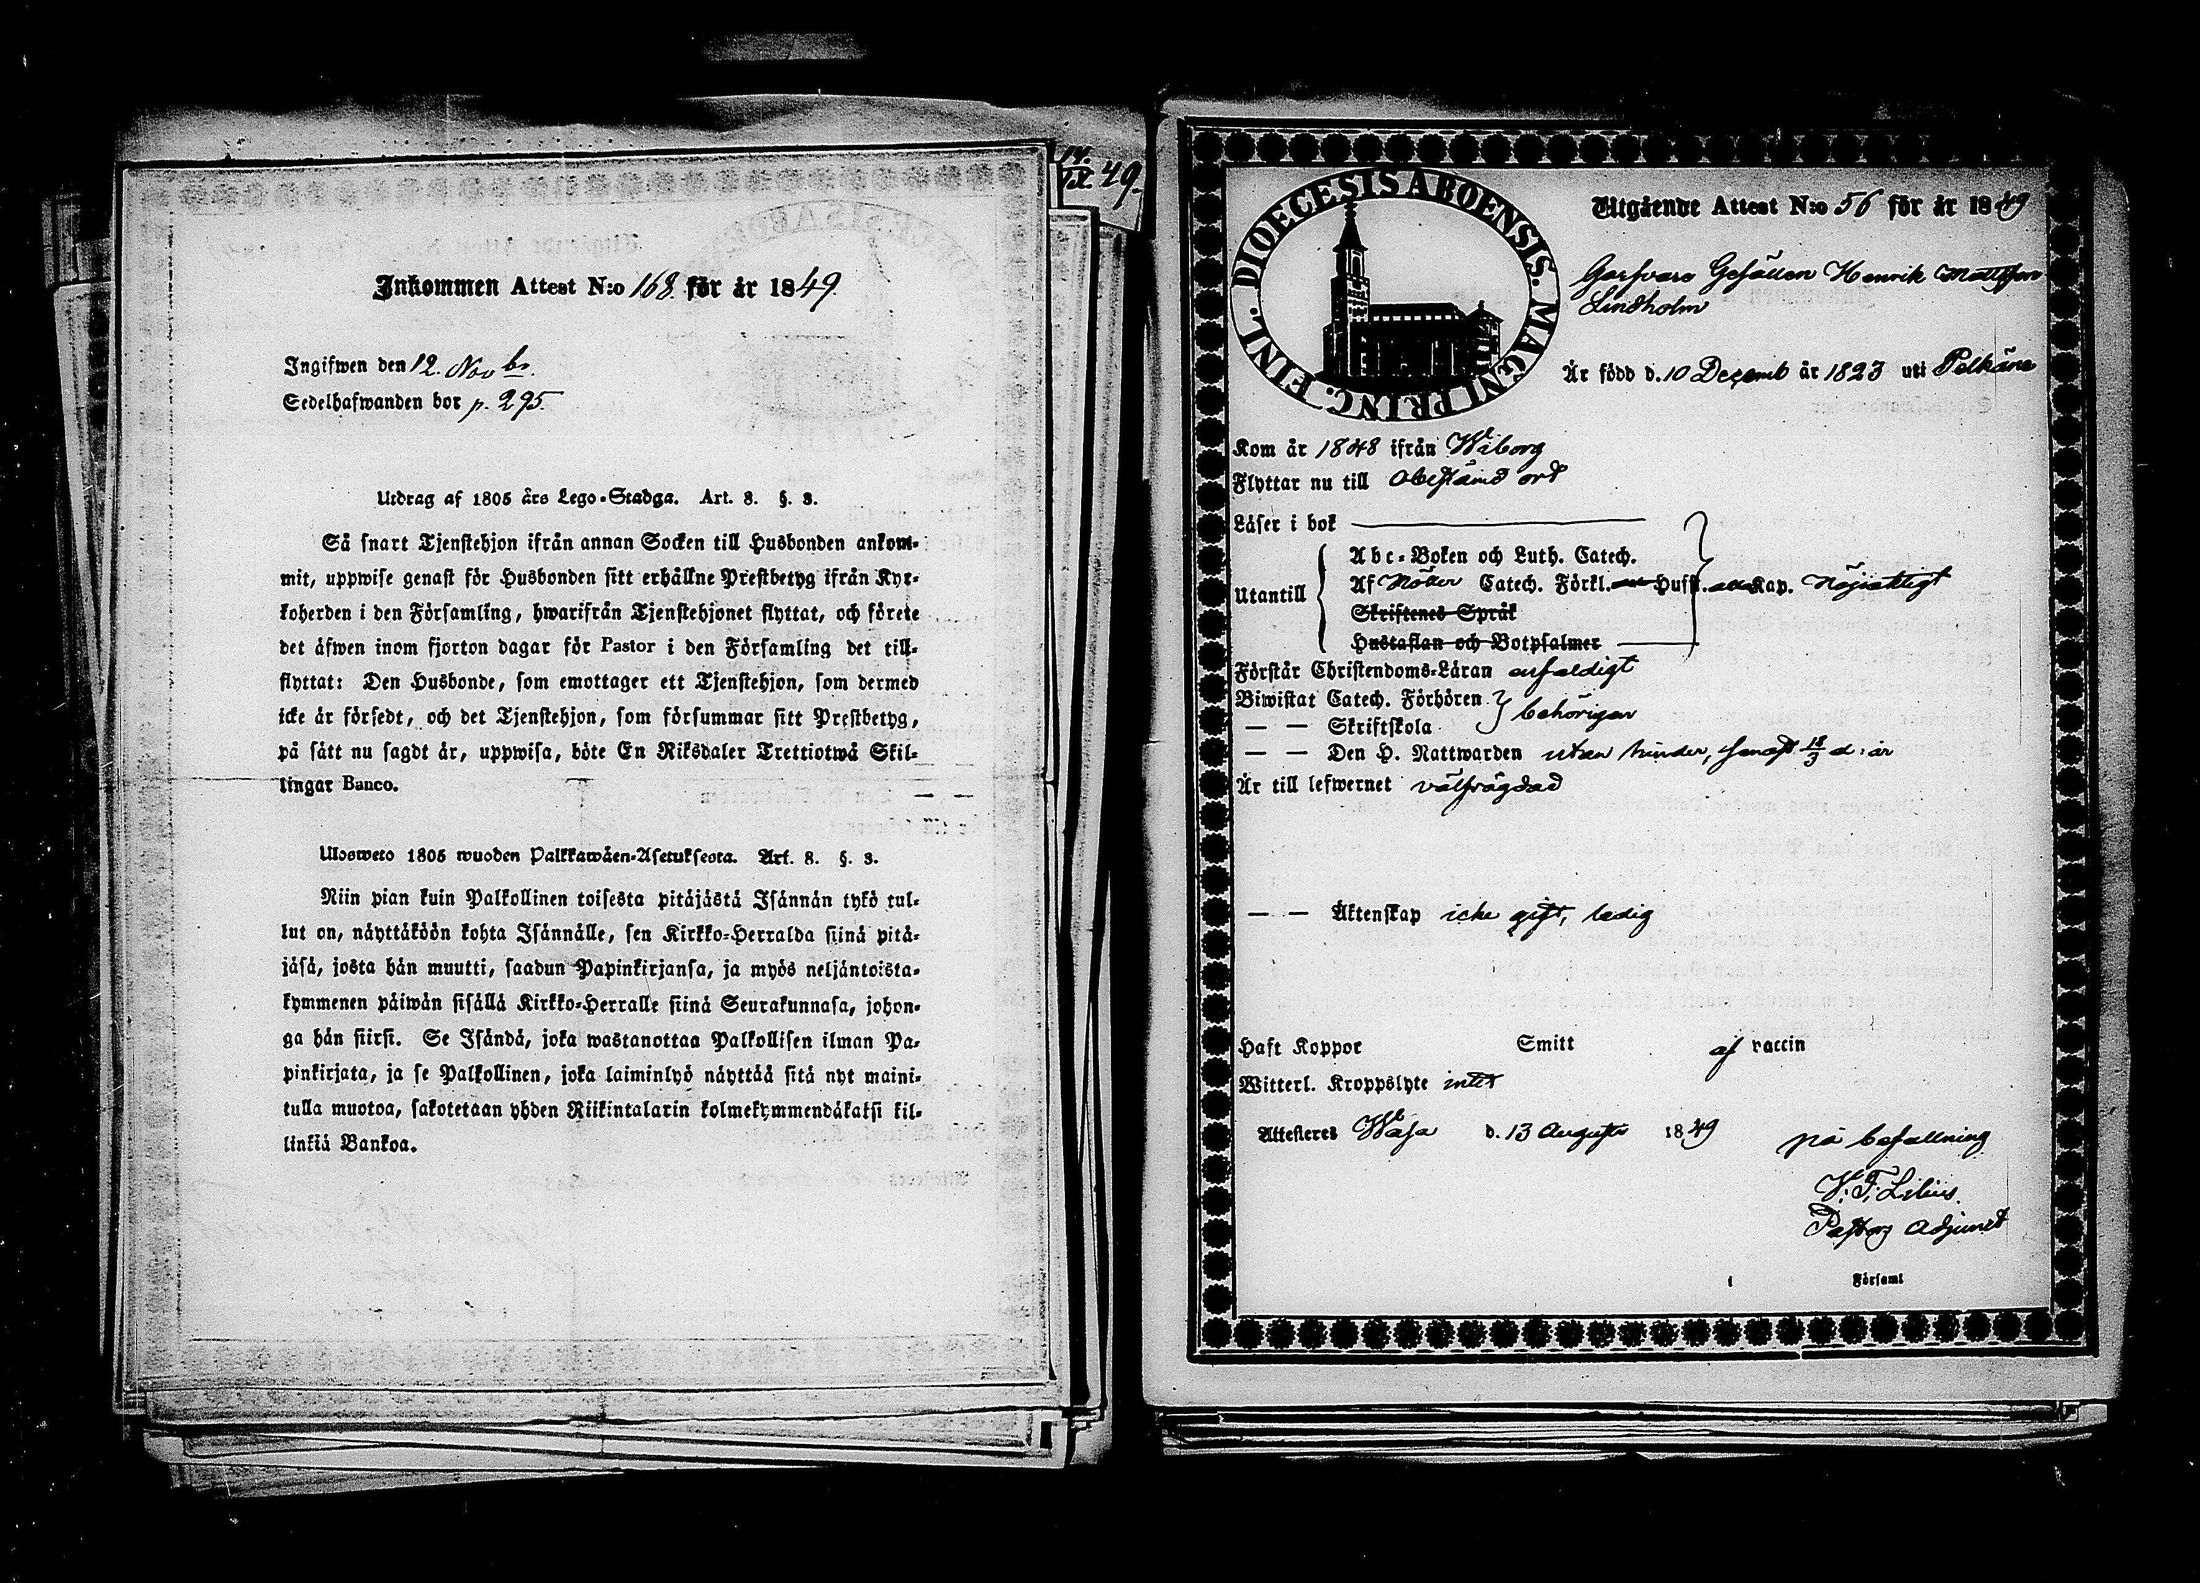 Inkommen Attest N:o 168. för år 1849.
Ingifwen den 12. Novbr.
Sedelhafwanden bor p. 295.
Utdrag af 1805 års Lego-Stadga. Art. 8. §. 3.
Så snart Tjenstehjon ifrån annan Socken till Husbonden ankom-
mit, uppwise genast för Husbonden sitt erhållne Prestbetyg ifrån Kyr-
koherden i den Församling, hwarifrån Tjenstehjonet flyttat, och förete
det äfwen inom fjorton dagar för Pastor i den Församling det till-
flyttat: Den Husbonde, som emottager ett Tjenstehjon, som dermed
icke är försedt, och det Tjenstehjon, som försummar sitt Prestbetyg,
på sätt nu sagdt är, uppwisa, böte En Riksdaler Trettiotwå Skil-
lingar Banco.
Ulosweto 1805 wuoden Palkkawäen-Asetuksesta. Art. 8. §. 3.
Niin pian kuin Palkollinen toisesta pitäjästä Isännän tykö tul-
lut on, näyttäköön kohta Isännälle, sen Kirkko-Herralda siinä pitä-
jäsä, josta hän muutti, saadun Papinkirjansa, ja myös neljäntoista-
kymmenen päiwän sisällä Kirkko-Herralle siinä Seurakunnasa, johon-
ga hän siirsi. Se Isändä, joka wastanottaa Palkollisen ilman Pa-
pinkirjata, ja se Palkollinen, joka laiminlyö näyttää sitä nyt maini-
tulla muotoa, sakotetaan yhden Riikintalarin kolmekymmendäkaksi kil-
linkiä Bankoa.
49.
DIOECESIS ABOENSIS. MAGNI PRINC. FINL.
Utgående Attest N:o 56 för år 1849
Garfvare Gesällen Henrik Mattsson
Lindholm
Är född d. 10 Decemb år 1823 uti Pelkäne
Kom år 1848 ifrån Wiborg
Flyttar nu till obestämd ort
Läser i bok
Utantill
Abc-Boken och Luth. Catech.
Af Nöller Catech. Förkl. Hufst. Kap. Nöjaktligt
Skriftenes Språk
Hustaflan och Botpsalmer
Förstår Christendoms-Läran enfaldigt
Biwistat Catech. Förhören } behörigen
— — Skriftskola
— — Den H. Nattwarden utan hinder, senast 18/3 d: år
Är till lefwernet välfrägdad
— — Äktenskap icke gift, ledig
Haft Koppor Smitt af vaccin
Witterl. Kroppslyte intet
Attesteres Wasa d. 13 Augusti 1849
på befallning
V. F. Lilius.
Pastors Adjunct
i Församl